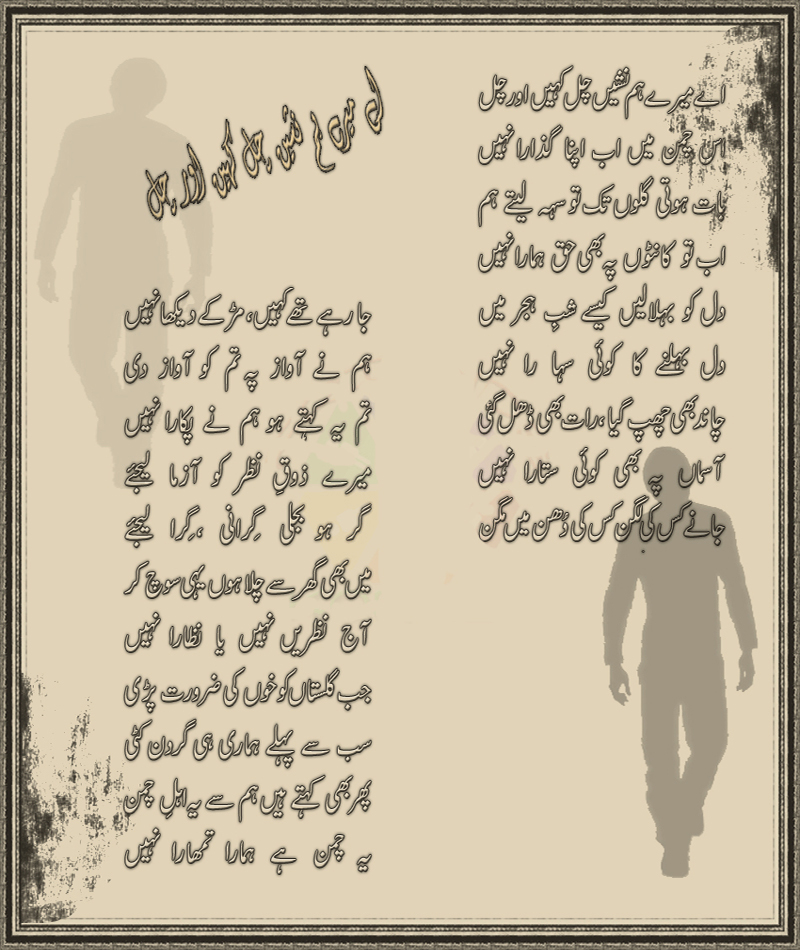 اے میرے ہم نشیں چل کہیں اور چل
اے میرے ہم نشیں چل کہیں اور چل
اس چمن میں اب اپنا گذارا نہیں
بات ہوتی گلوں تک تو سہہ لیتے ہم
اب تو کانٹوں پہ بھی حق ہمارا نہیں
دل کو بہلالیں کیسے شبِ ہجر میں
دل بہلنے کا کوئی سہا را نہیں
چاند بھی چھپ گیا،رات بھی ڈھل گئی
آسماں پہ بھی کوئی ستارا نہیں
جانے کس کی لگن کس کی دُھن میں مگن
جا رہے تھے کہیں،مڑ کے دیکھا نہیں
ہم نے آواز پہ تم کو آواز دی
تم یہ کہتے ہو ہم نے پکارا نہیں
میرے ذوقِ نظر کو آزما لیجئے
گر ہو بجلی گِرانی ،گِرا لیجئے
میں بھی گھر سے چلا ہوں یہی سوچ کر
آج نظریں نہیں یا نظارا نہیں
جب گلستاں کو خوں کی ضرورت پڑی
سب سے پہلے ہماری ہی گردن کٹی
پھر بھی کہتے ہیں ہم سے یہ اہلِ چمن
یہ چمن ہے ہمارا تمھارا نہیں